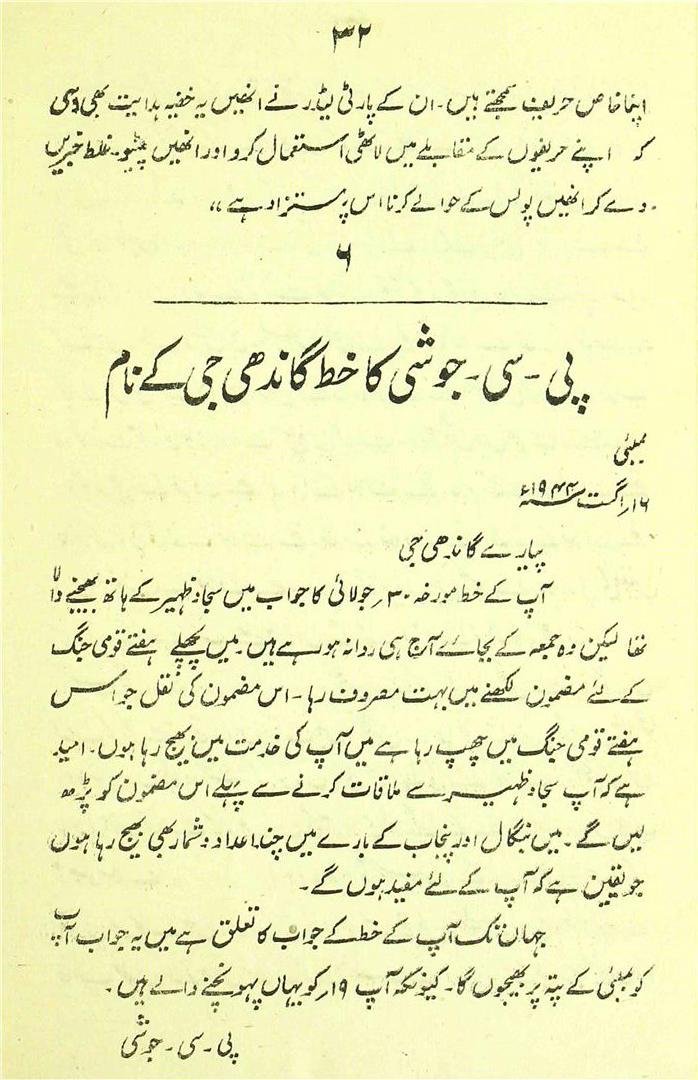 ۳۲
اپنا خاص حریف سمجھتے ہیں۔ ان کے پارٹی لیڈر نے انھیں یہ خفیہ ہدایت بھی دی
کہ اپنے حریفوں کے مقابلے میں لاٹھی استعمال کرو اور انھیں پیٹیو۔ غلط خبریں
دے کر انھیں پولس کے حوالے کرنا اس پر مستزاد ہے ،،
۶
پی ۔ سی ۔ جوشی کا خط گاندھی جی کے نام
بمبئی
۱۶؍ اگست سنہ ۱۹۴۴ء
پیارے گاندھی جی
آپ کے خط مورخہ ۳۰؍ جولائی کا جواب میں سجاد ظہیر کے ہاتھ بھیجنے والا
تھا لیکن وہ جمعہ کے بجائے آج ہی روانہ ہو رہے ہیں۔ میں پچھلے ہفتے قومی جنگ
کے لئے مضمون لکھنے میں بہت مصروف رہا ۔ اس مضمون کی نقل جو اس
ہفتے قومی جنگ میں چھپ رہا ہے میں آپ کی خدمت میں بھیج رہا ہوں۔ امید
ہے کہ آپ سجاد ظہیر سے ملاقات کرنے سے پہلے اس مضمون کو پڑھ
لیں گے ۔ میں بنگال اور پنجاب کے بارے میں چند اعداد و شمار بھی بھیج رہا ہوں
جو یقین ہے کہ آپ کے لئے مفید ہوں گے۔
جہاں تک آپ کے خط کے جواب کا تعلق ہے میں یہ جواب آپ
کو بمبئی کے پتہ پر بھیجوں گا۔ کیونکہ آپ ۱۹؍ کو یہاں پہونچنے والے ہیں ۔
پی ۔ سی ۔ جوشی